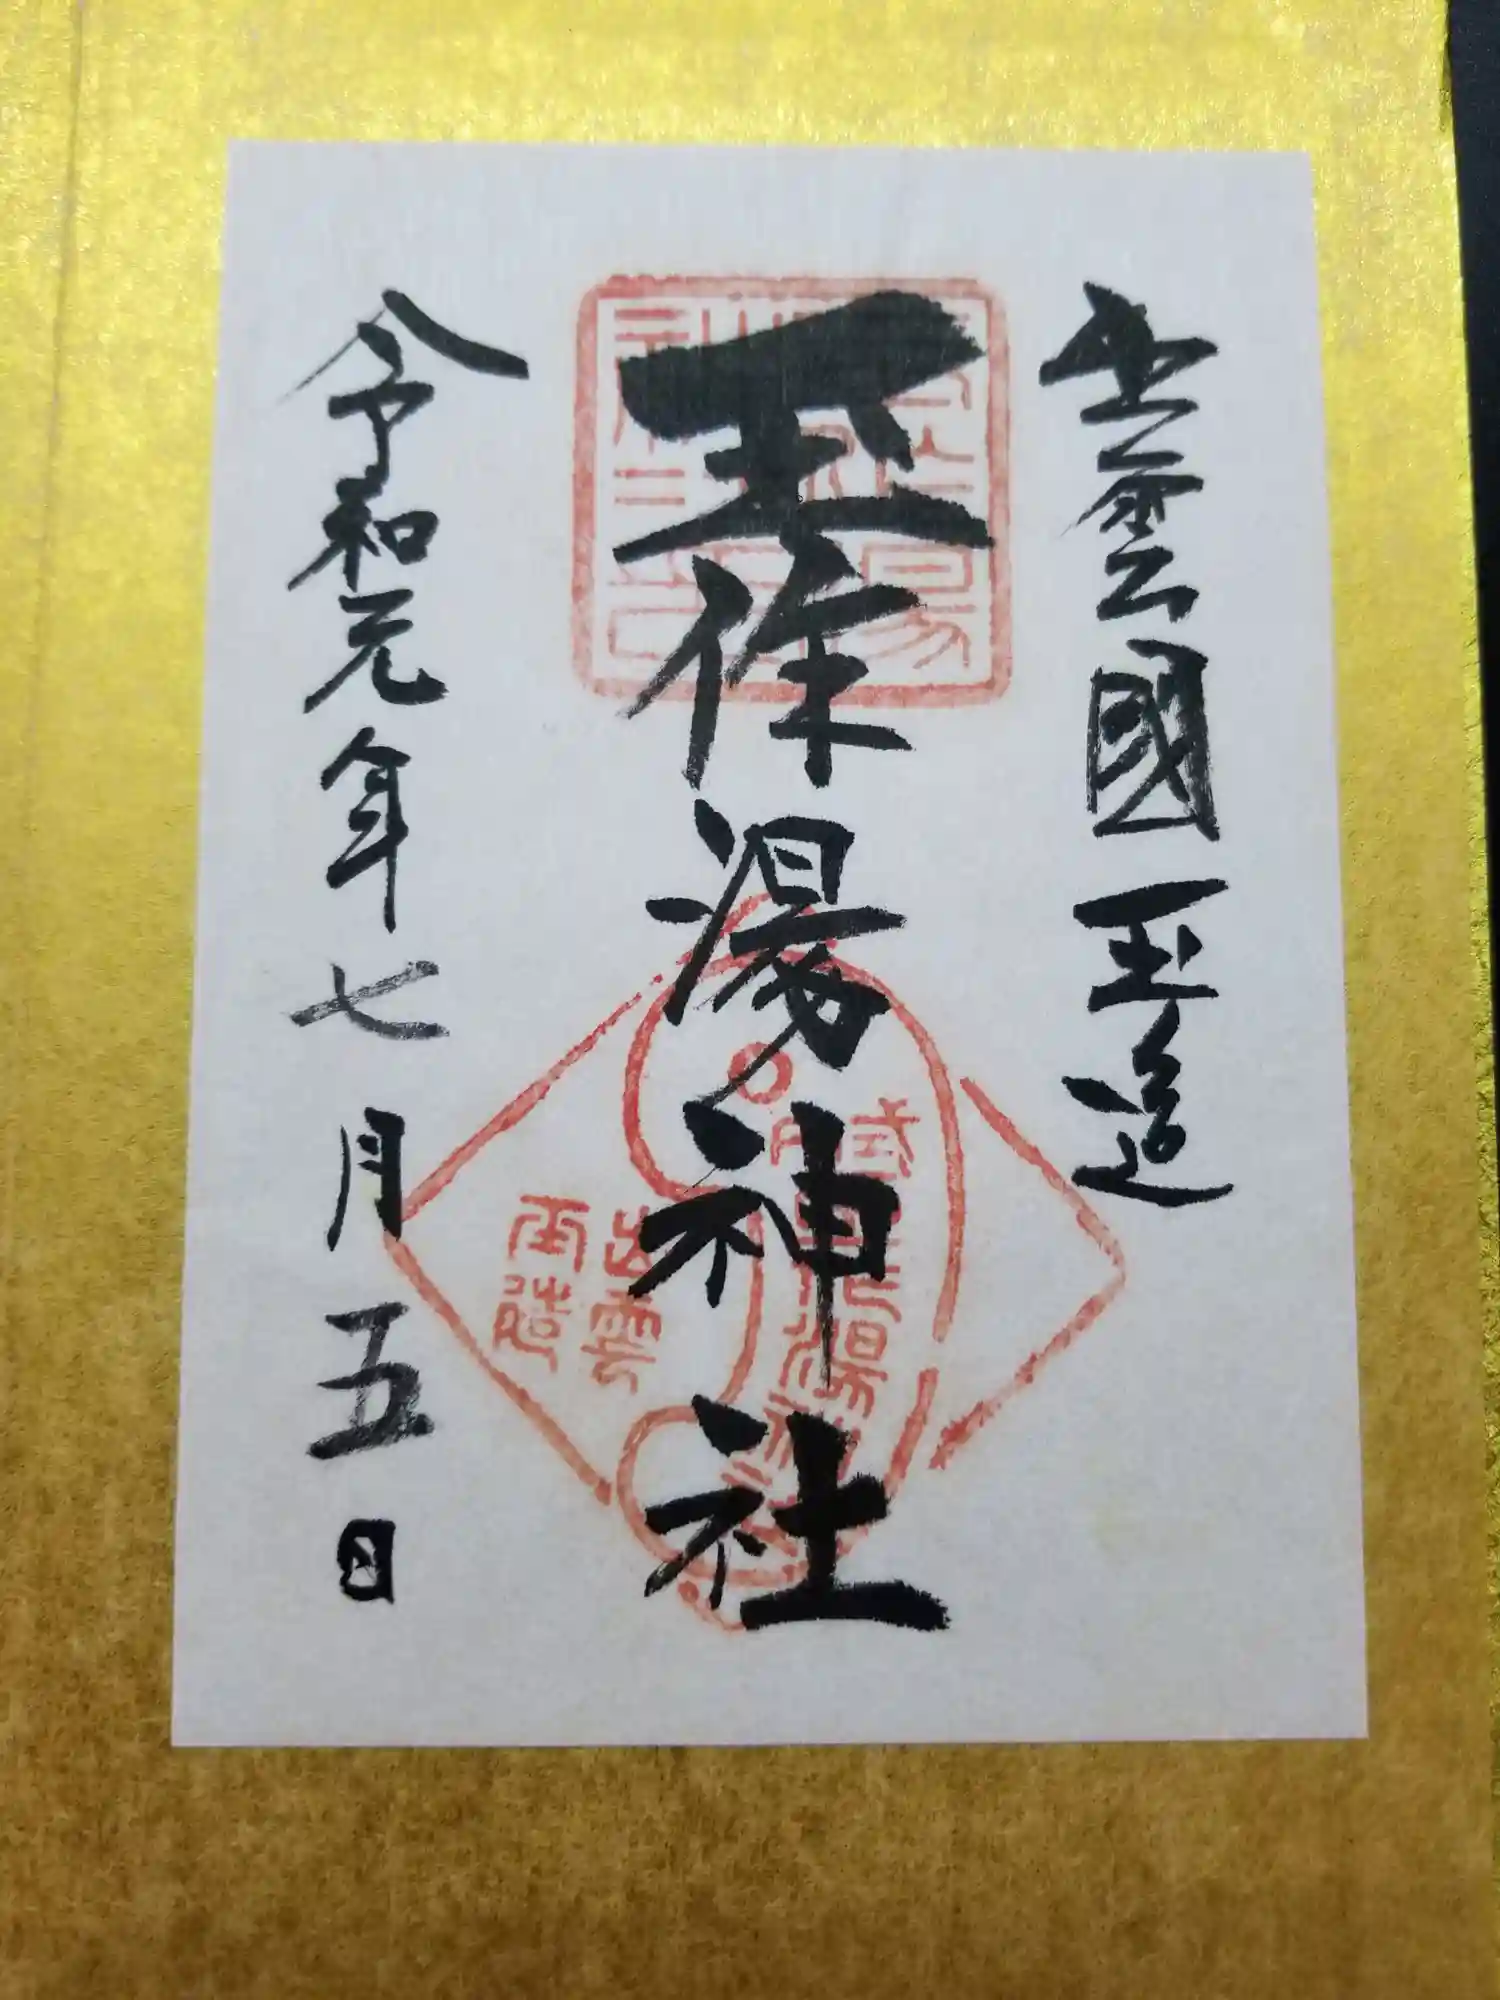 出雲國玉造
玉作湯神社
令和元年七月五日
出雲
玉造